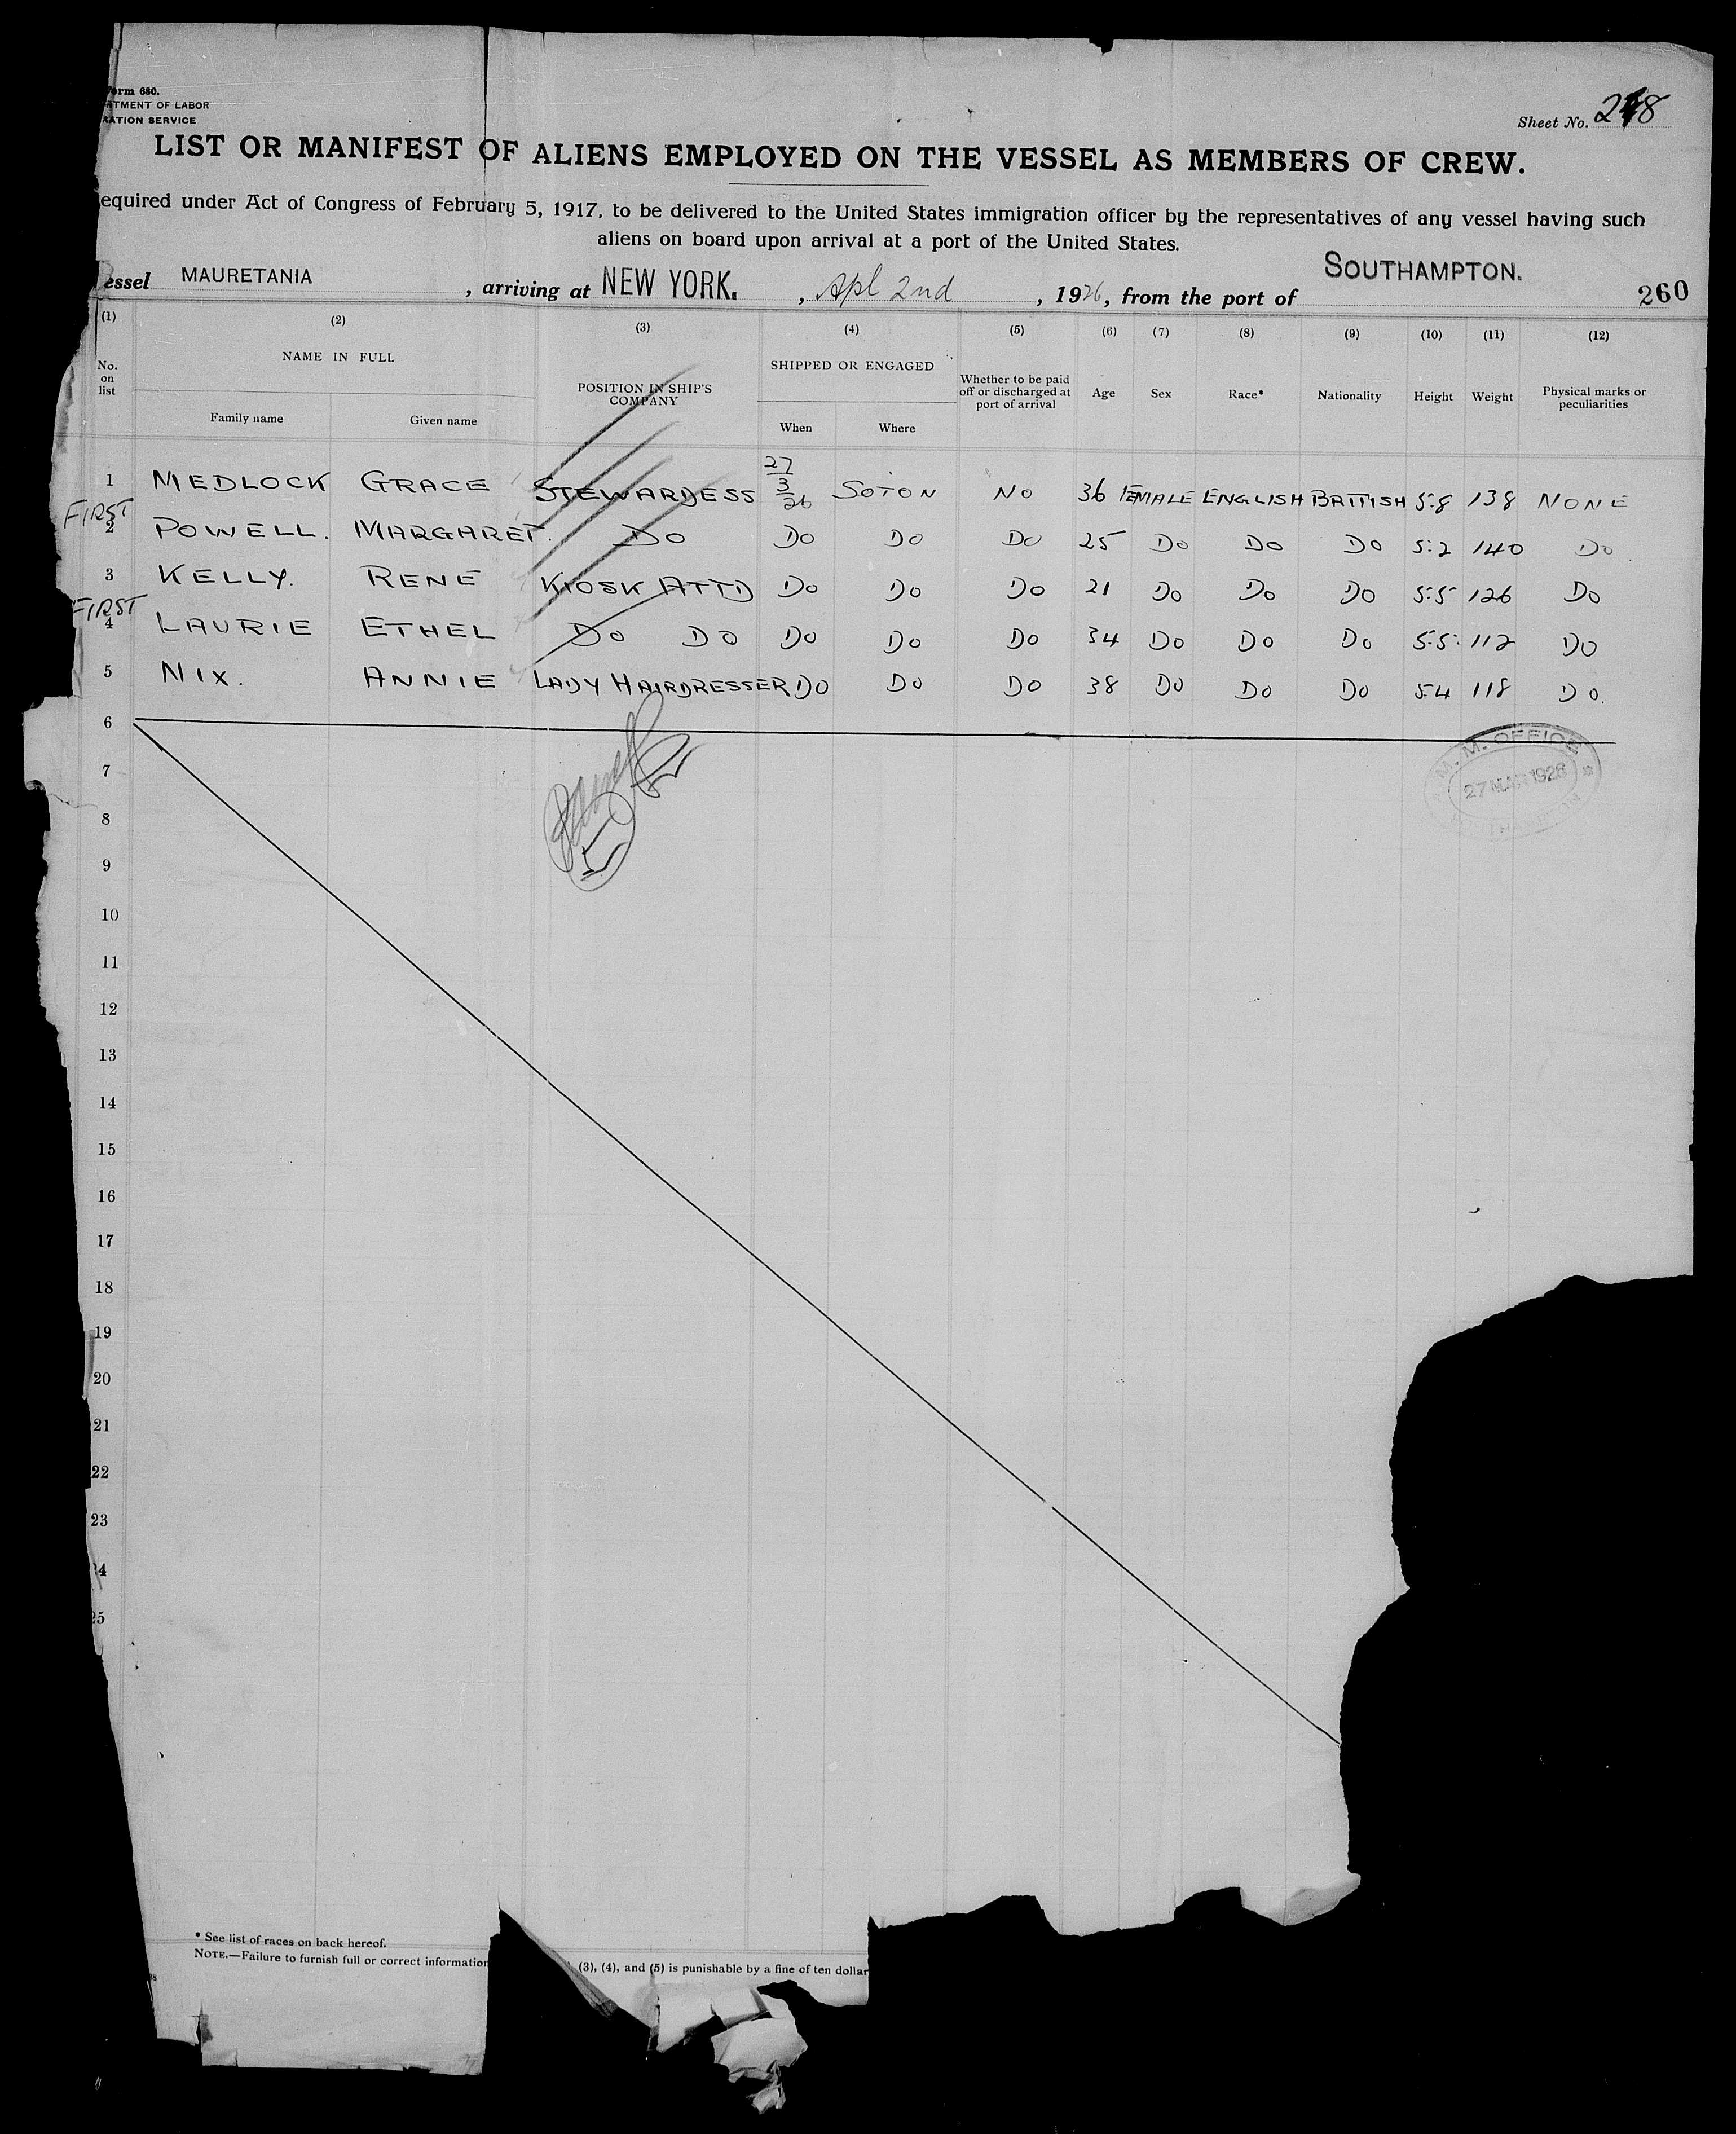 orm 680.
TMENT OF LABOR
RATION SERVICE
Sheet No. 28
LIST OR MANIFEST OF ALIENS EMPLOYED ON THE VESSEL AS MEMBERS OF CREW.
equired under Act of Congress of February 5, 1917, to be delivered to the United States immigration officer by the representatives of any vessel having such
aliens on board upon arrival at a port of the United States.
essel MAURETANIA , arriving at NEW YORK. , Apl 2nd , 1926, from the port of SOUTHAMPTON.
260
(1) (2) (3) (4) (5) (6) (7) (8) (9) (10) (11) (12)
No. on list NAME IN FULL Family name Given name POSITION IN SHIP'S COMPANY SHIPPED OR ENGAGED When Where Whether to be paid off or discharged at port of arrival Age Sex Race* Nationality Height Weight Physical marks or peculiarities
1 MEDLOCK GRACE STEWARDESS 27/3/26 SOTON NO 36 FEMALE ENGLISH BRITISH 5.8 138 NONE
FIRST
2 POWELL. MARGARET. DO DO DO DO 25 DO DO DO 5:2 140 DO.
3 KELLY. RENE KIOSK ATTD DO DO DO 21 DO DO DO 5:5 126 DO
FIRST
4 LAURIE ETHEL DO DO DO DO DO 34 DO DO DO 5.5. 112 DO
5 NIX. ANNIE LADY HAIRDRESSER DO DO DO 38 DO DO DO 5.4 118 DO.
6
M. M. OFFICE
27 MAR 1926
7
8
9
10
11
12
13
14
15
16
17
18
19
20
21
22
23
24
25
* See list of races on back hereof.
NOTE.—Failure to furnish full or correct information (3), (4), and (5) is punishable by a fine of ten dollar